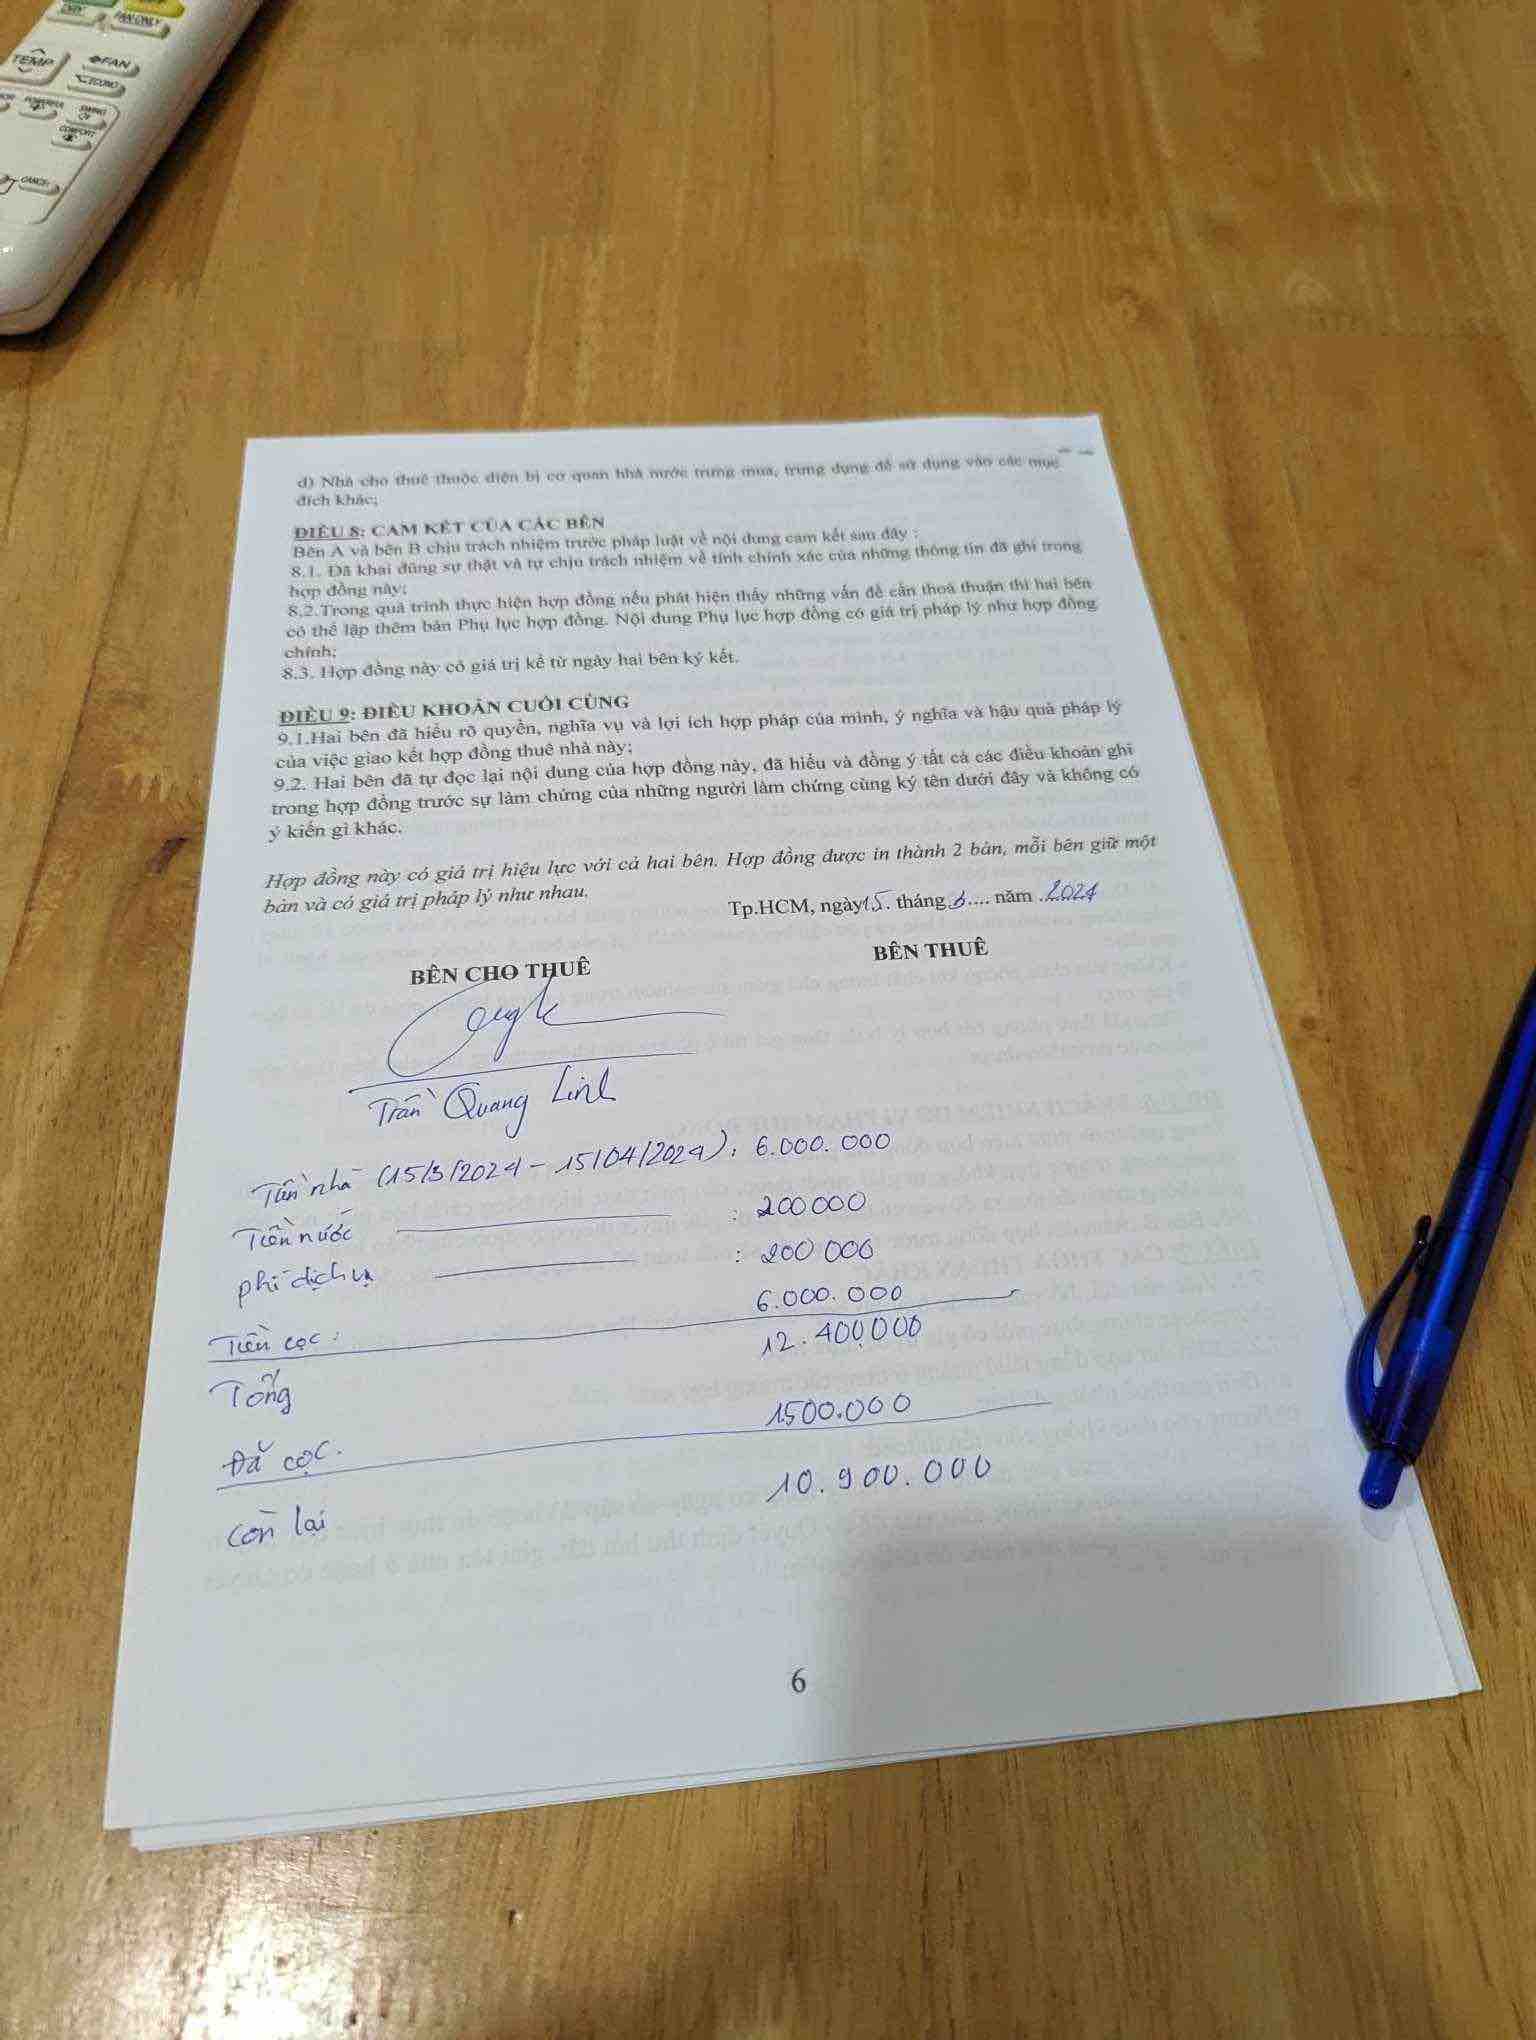 DRY
FAN ONLY
TEMP
FAN
ECONO
POWERFUL
SWING
COMFORT
CANCEL
d) Nhà cho thuê thuộc diện bị cơ quan nhà nước trưng mua, trưng dụng để sử dụng vào các mục
đích khác;
ĐIỀU 8: CAM KẾT CỦA CÁC BÊN
Bên A và bên B chịu trách nhiệm trước pháp luật về nội dung cam kết sau đây :
8.1. Đã khai đúng sự thật và tự chịu trách nhiệm về tính chính xác của những thông tin đã ghi trong
hợp đồng này;
8.2.Trong quá trình thực hiện hợp đồng nếu phát hiện thấy những vấn đề cần thoả thuận thì hai bên
có thể lập thêm bản Phụ lục hợp đồng. Nội dung Phụ lục hợp đồng có giá trị pháp lý như hợp đồng
chính;
8.3. Hợp đồng này có giá trị kể từ ngày hai bên ký kết.
ĐIỀU 9: ĐIỀU KHOẢN CUỐI CÙNG
9.1.Hai bên đã hiểu rõ quyền, nghĩa vụ và lợi ích hợp pháp của mình, ý nghĩa và hậu quả pháp lý
của việc giao kết hợp đồng thuê nhà này;
9.2. Hai bên đã tự đọc lại nội dung của hợp đồng này, đã hiểu và đồng ý tất cả các điều khoản ghi
trong hợp đồng trước sự làm chứng của những người làm chứng cùng ký tên dưới đây và không có
ý kiến gì khác.
Hợp đồng này có giá trị hiệu lực với cả hai bên. Hợp đồng được in thành 2 bản, mỗi bên giữ một
bản và có giá trị pháp lý như nhau.
Tp.HCM, ngày 15. tháng 3.... năm .2024
BÊN CHO THUÊ BÊN THUÊ
Trần Quang Linh
Tiền nhà (15/3/2024 - 15/04/2024): 6.000.000
Tiền nước : 200000
phí dịch vụ : 200 000
Tiền cọc: 6.000.000
Tổng 12.400,000
Đã cọc. 1500.000
Còn lại 10.900.000
6